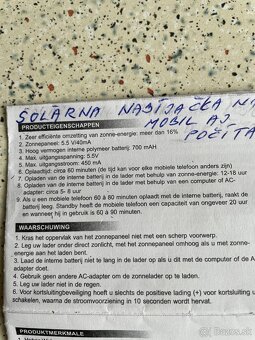 SOLÁRNA NABÍJAČKA NA
MOBIL AJ
POČÍTA
PRODUCTEIGENSCHAPPEN
1. Zeer efficiënte omzetting van zonne-energie: meer dan 16%
2. Zonnepaneel: 5.5 V/40mA
3. Hoog vermogen interne polymeer batterij: 700 mAH
4. Max. uitgangsspanning: 5.5V
5. Max. uitgangsstroom: 450 mA
6. Oplaadtijd: circa 60 minuten (de tijd kan voor elke mobiele telefoon anders zijn)
7. Opladen van de interne batterij in de lader met behulp van zonne-energie: 12-18 uur
8. Opladen van de interne batterij in de lader met behulp van een computer of een AC-
adapter: circa 5- 8 uur
9. Als u een mobiele telefoon 60 à 80 minuten oplaadt met de interne batterij, raakt de
batterij leeg. Standby heeft de mobiele telefoon een capaciteit van ongeveer 20 uur
en wanneer hij in gebruik is 60 à 90 minuten.
WAARSCHUWING
1. Kras het oppervlak van het zonnepaneel niet met een scherp voorwerp.
2. Leg uw lader onder direct zonlicht, met het zonnepaneel omhoog als u het wilt
opladen.
3. Laad de interne batterij niet te lang in de lader op als u dit met de computer of de AC-
adapter doet.
4. Gebruik geen andere AC-adapter om de zonnelader op te laden.
5. Leg uw lader niet in water.
6. Voor kortsluitingbeveiliging hoeft u slechts de positieve lading (+) voor kortsluiting uit te
schakelen, waarna de stroomvoorziening in 10 seconden wordt hervat.
PRODUKTMERKMALE